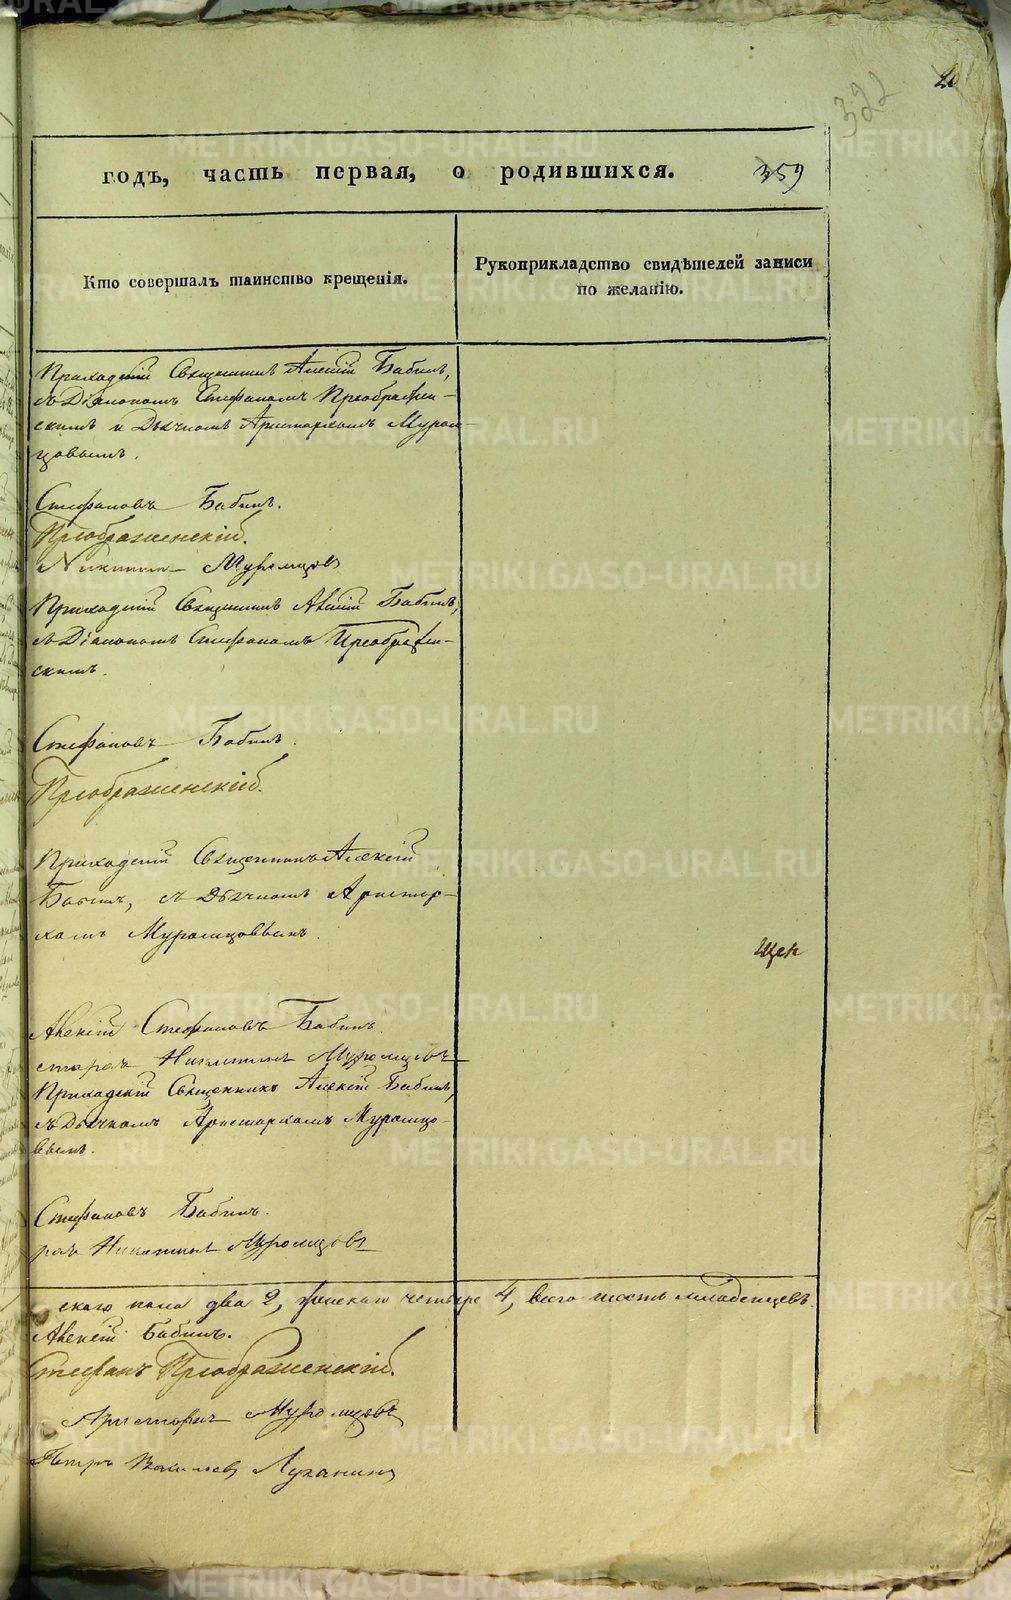 322
359
годъ, часть первая, о родившихся.
Кто совершалъ таинство крещенія.
Рукоприкладство свидѣтелей записи
по желанію.
Приходскій Священникъ Алексій Бабинъ,
съ Діакономъ Стефаномъ Преображен-
скимъ и Дьячкомъ Аристархомъ Муром-
цовымъ.
Стефановъ Бабинъ.
Преображенскій.
Никитинъ Муромцовъ
Приходскій Священникъ Алексій Бабинъ,
съ Діакономъ Стефаномъ Преображен-
скимъ.
Стефановъ Бабинъ.
Преображенскій.
Приходскій Священникъ Алексій
Бабинъ, съ Дьячкомъ Аристар-
хомъ Муромцовымъ.
Щен
Алексій Стефановъ Бабинъ.
стархъ Никитинъ Муромцовъ
Приходскій Священникъ Алексій Бабинъ,
съ Дьячкомъ Аристархомъ Муромцо-
вымъ.
Стефановъ Бабинъ.
рхъ Никитинъ Муромцовъ
скаго пола два 2, женскаго четыре 4, всего шесть младенцевъ.
Алексій Бабинъ.
Стефанъ Преображенскій.
Аристархъ Муромцовъ
Петръ Васильевъ Луканинъ
METRIKI.GASO-URAL.RU